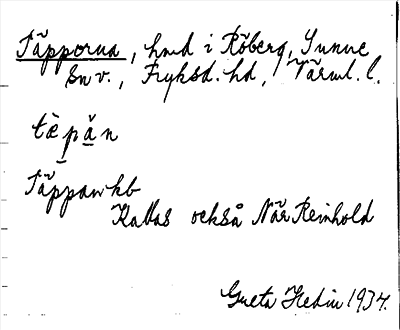 Täpporna, hmd i Röberg, Sunne
Snv., Fryksd. hd, Värml. l.
tὲpa᷅n
Täppan kb
Kallas också När Reinhold
Greta Hedin 1934.